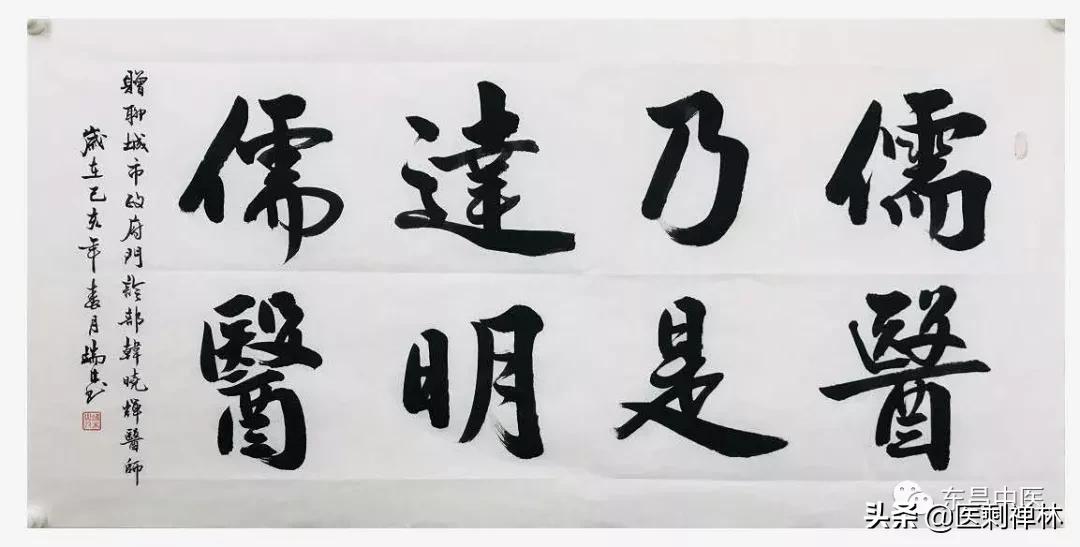 儒醫
乃是
達明
儒醫
贈聊城市政府門診部韓晓輝醫師
歲在己亥年春月瑞
东昌中医
头条 @医剩禅林